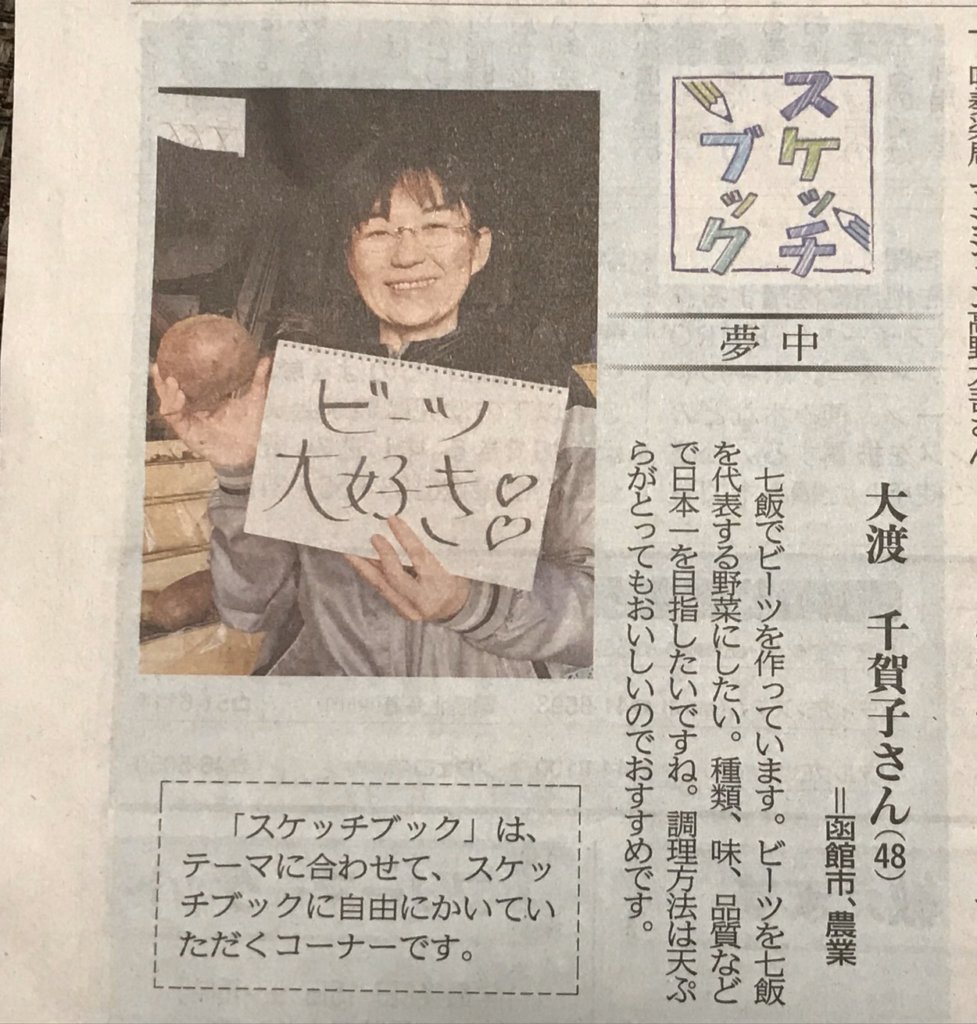 スケッチ
ブック
夢中
大渡 千賀子さん(48)
=函館市、農業
七飯でビーツを作っています。ビーツを七飯
を代表する野菜にしたい。種類、味、品質など
で日本一を目指したいですね。調理方法は天ぷ
らがとってもおいしいのでおすすめです。
ビーツ
大好き♡♡
「スケッチブック」は、
テーマに合わせて、スケッ
チブックに自由にかいてい
ただくコーナーです。